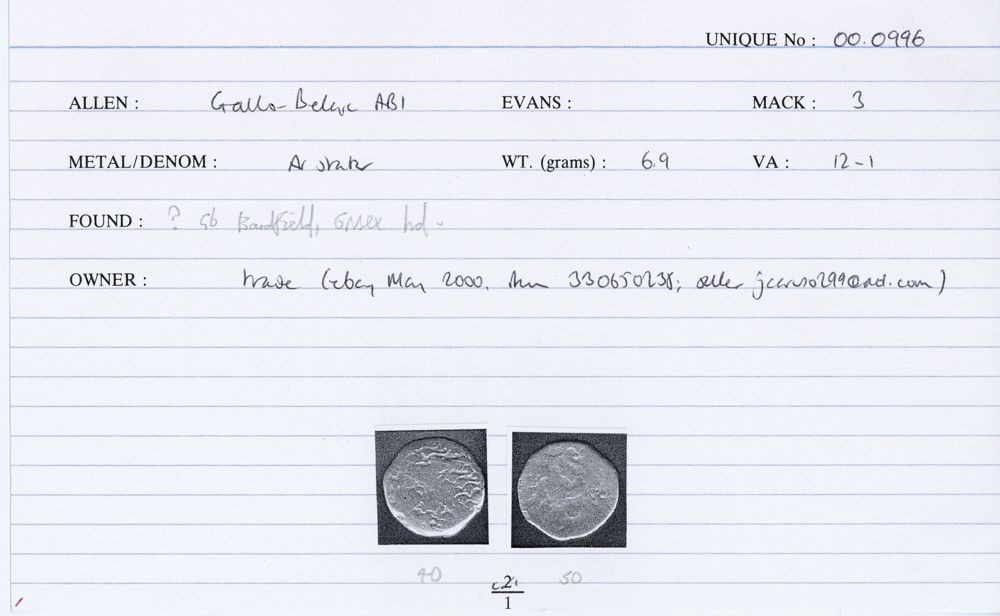 UNIQUE No : 00.0996
ALLEN : Gallo-Belgic AB1 EVANS : MACK : 3
METAL/DENOM : stater WT. (grams) : 6.9 VA : 12-1
FOUND : ? Bardfield, Essex hd.
OWNER : trade (ebay May 2000, 330650238; seller
40 50
1